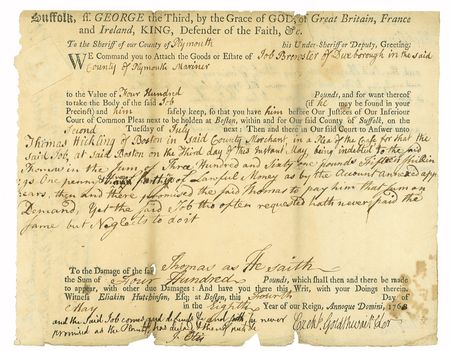 Suffolk, ſſ. GEORGE the Third, by the Grace of GOD, of Great Britain, France
and Ireland, KING, Defender of the Faith, &c.
To the Sheriff of our County of Plymouth his Under-Sheriff or Deputy, Greeting;
WE Command you to Attach the Goods or Eſtate of Job Brewster of Duxborough in the said
County of Plymouth Mariner
to the Value of Four Hundred Pounds, and for want thereof
to take the Body of the ſaid Job (if he may be found in your
Precinct) and him ſafely keep, ſo that you have him before Our Juſtices of Our Inferiour
Court of Common Pleas next to be holden at Boſton, within and for Our ſaid County of Suffolk, on the
Second Tuesday of July next: Then and there in Our ſaid Court to Anſwer unto
Thomas Hickling of Boston in Said County Merchant, in a Plea of the Case for that the
Said Job, at said Boston on the Third day of this Instant, May being indebted to the said
Thomas in the Sum of Three Hundred and Sixty one pounds Shillin
gs One penny farthing of Lawful Money as by the Account Annexed app
ears, then and there promised the said Thomas to pay him that Sum on
Demand; Yet the said Job tho often requested hath never paid the
Same but Neglects to do it
To the Damage of the ſaid Thomas as He saith
the Sum of Four Hundred Pounds, which ſhall then and there be made
to appear, with other due Damages: And have you there this Writ, with your Doings therein.
Witneſs Eliakim Hutchinſon, Eſq; at Boſton, this Fourth Day of
May in the Eighth Year of our Reign, Annoque Domini, 1768
and the Said Job comes and defends &c and saith he never Ezekl. Goldthwait Cler
promised as the
J. Otis